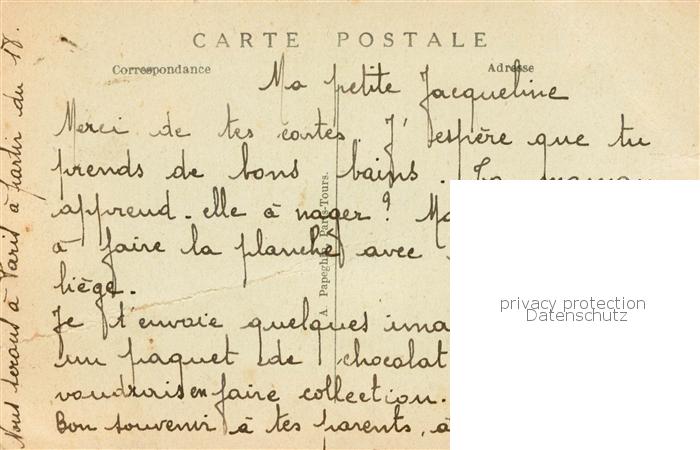 CARTE POSTALE
Correspondance
Adresse
Ma petite Jacqueline
Merci de tes cartes. J'espère que tu
prends de bons bains. Ta maman
apprend-elle à nager? Ma
à faire la planche avec
liège.
Je t'envoie quelques ima
un paquet de chocolat
voudrais en faire collection.
Bon souvenir à tes parents, à
Nous serons à Paris à partir du 18.
A. Papeghin, Paris-Tours.
privacy protection
Datenschutz